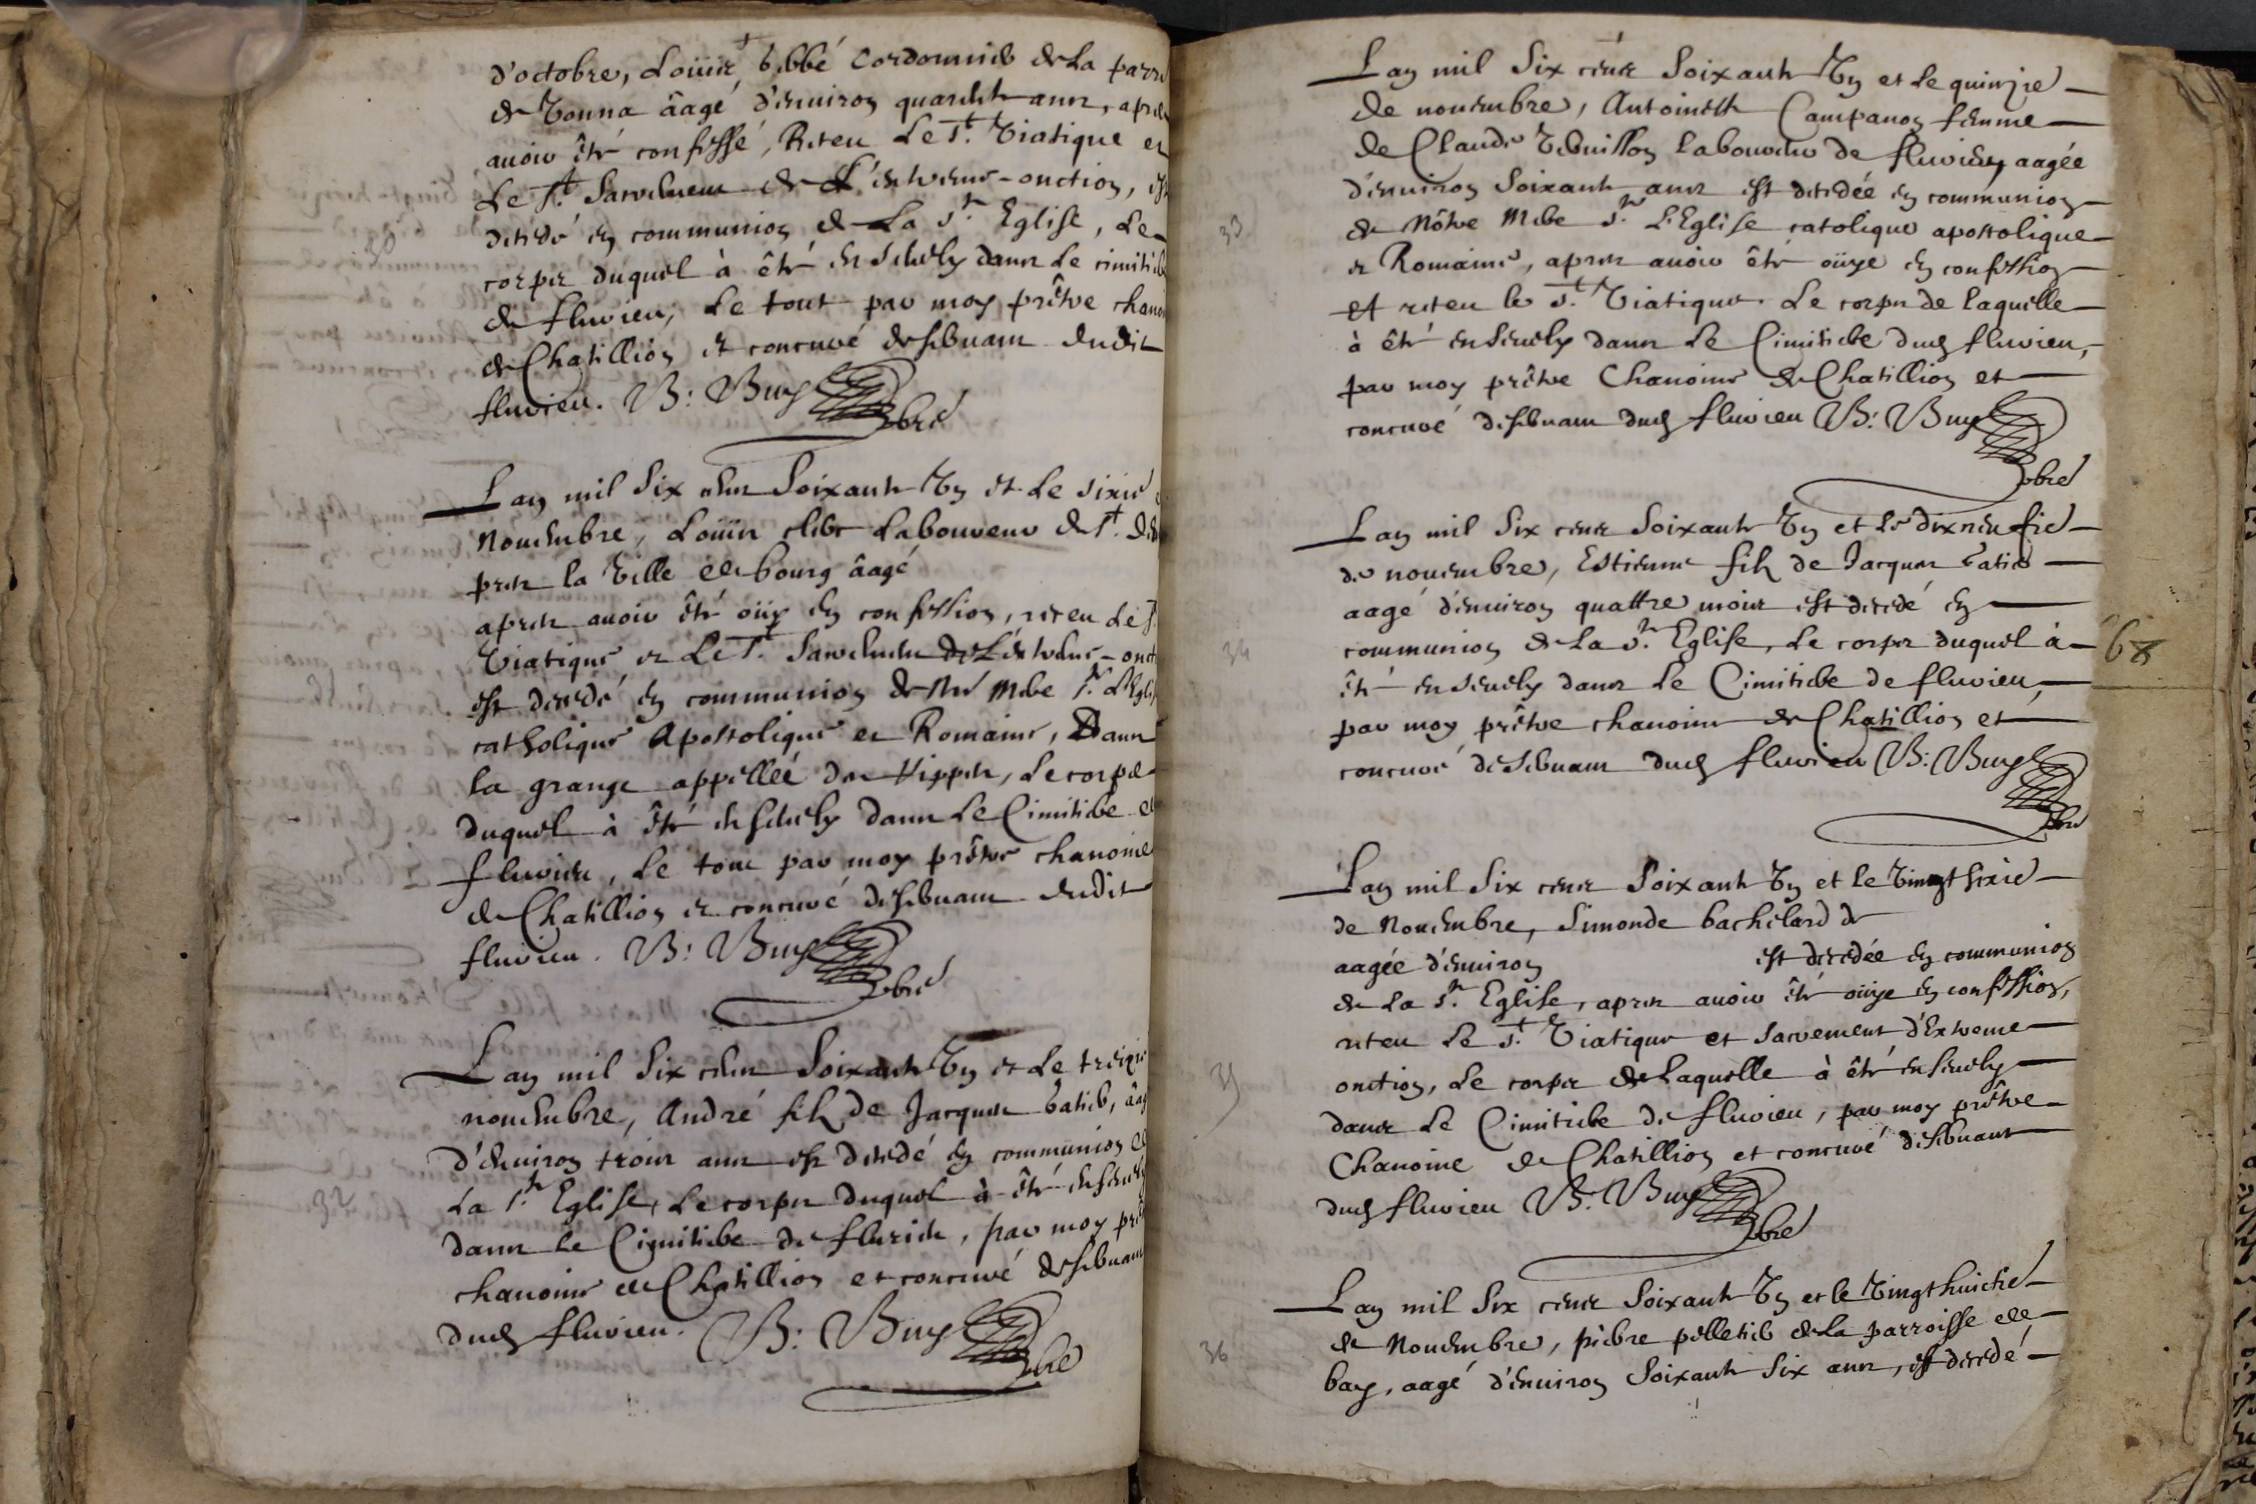 d'octobre, Loüis bibbé Cordonnier de La parr
de Vonna âagé d'enuiron quarente ans, apres
auoir êté confessé, Receu Le St. Viatique et
Le St. Sacrement de L'extreme-onction, est
decedé en communion de La Ste Eglise, Le
corps duquel à êté ensevely dans Le cimitiere
de fluvieu, Le tout par moy prêtre chanoi
de Chatillion et concuré deservant dudit
fluvieu. B: Buy pbre
Lan mil Six cens Soixante Vn et Le sixie
Nouembre, Loüis clerc Laboureur de St. den
pres la Ville de bourg âagé
apres auoir êté oüy en confession, receu Le St
Viatique et Le St. Sacrement de L'extreme-onct
est decedé en communion de Nre Mere Ste L'Egli
catholique Apostolique et Romaine, Dans
la grange appellée des Vippes, Le corps
duquel à êté ensevely dans Le Cimitiere de
fluvieu, Le tout par moy prêtre chanoine
de Chatillion et concuré deservant dudit
fluvieu. B: Buy pbre
Lan mil Six cens Soixante Vn et Le treizie
nouembre, André fils de Jacques Catier, âag
d'enuiron trois ans est decedé en communion de
La Ste Eglise, Le corps duquel à êté enseuely
32
dans Le Cimitiere de fluvieu, par moy prêt
chanoine de Chatillion et concuré deservant
dud. fluvieu. B: Buy pbre
Lan mil Six cens Soixante Vn et Le quinzie
de nouembre, Antoinette Campanon femme
de Claude Tebuisson Laboureur de fluvieu aagée
d'enuiron Soixante ans est decedée en communion
33
de Nôtre Mere Ste L'Eglise catolique apostolique
et Romaine, apres auoir êté oüye en confession
et receu le St. Viatique. Le corps de laquelle
à êté enseuely dans Le Cimitiere dud. fluvieu,
par moy prêtre Chanoine de Chatillion et
concuré deservant dud. fluvieu B: Buy
pbre
Lan mil Six cens Soixante Vn et Le dixneufie
de nouembre, Estienne fils de Jacques Catier
aagé d'enuiron quattre mois est decedé en
34
communion de La Ste Eglise, Le corps duquel à
68
êté enseuely dans Le Cimitiere de fluvieu,
par moy prêtre chanoine de Chatillion et
concuré deservant dud. fluvieu B: Buy
pbre
Lan mil Six cens Soixante Vn et Le Vingtsixie
de Nouembre, Simonde bachelard de
aagée d'enuiron est decedée en communion
de La Ste Eglise, apres auoir êté oüye en confession,
receu Le St. Viatique et Sacrement d'Extreme
35
onction, Le corps de Laquelle à êté enseuely
dans Le Cimitiere de fluvieu, par moy prêtre
Chanoine de Chatillion et concuré deservant
dud. fluvieu B: Buy
pbre
Lan mil Six cens Soixante Vn et Le Vingthuictie
36
de Nouembre, pierre pelletier de La parroisse de
bay, aagé d'enuiron Soixante Six ans, est decedé